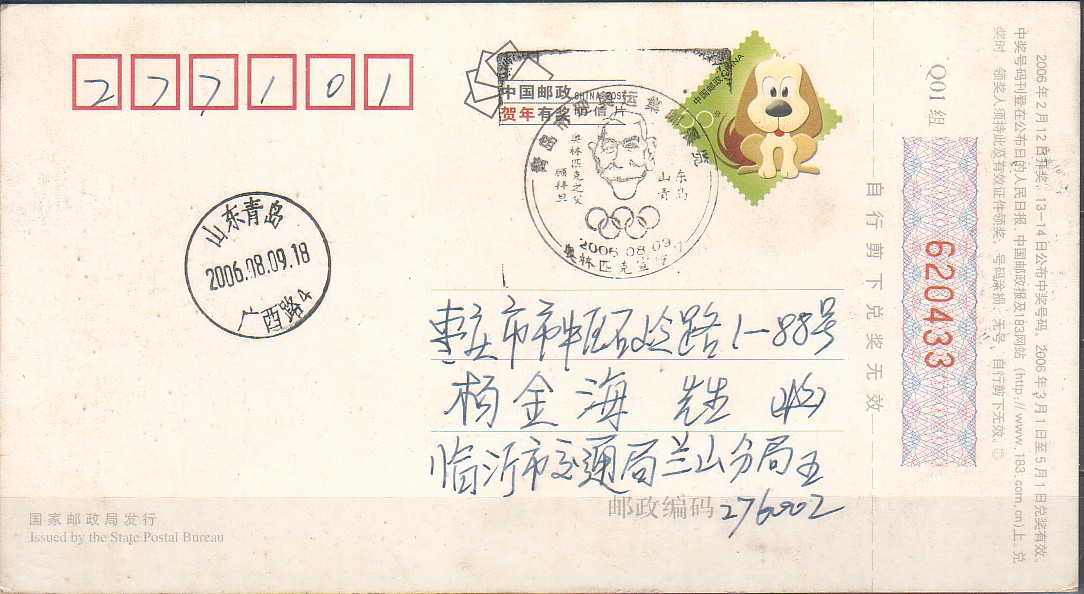 277101
中国邮政 CHINA POST
贺年有奖明信片
中国邮政 CHINA
奥林匹克之父
顾拜旦
山东
青岛
2006.08.09
奥林匹克宣传
山东青岛
2006.08.09.18
广西路4
枣庄市市中区石令路1-88号
杨金海 先生 收
临沂市交通局兰山分局王
邮政编码 276002
国家邮政局发行
Issued by the State Postal Bureau
自行剪下兑奖无效
Q01组
620433
2006年2月12日开奖,13-14日公布中奖号码。2006年3月1日至5月1日兑奖有效。
中奖号码刊登在公布日的人民日报、中国邮政报及183网站(http://www.183.com.cn)上。兑
奖时,领奖人须持此及有效证件领奖。号码涂损、无号,自行剪下无效。